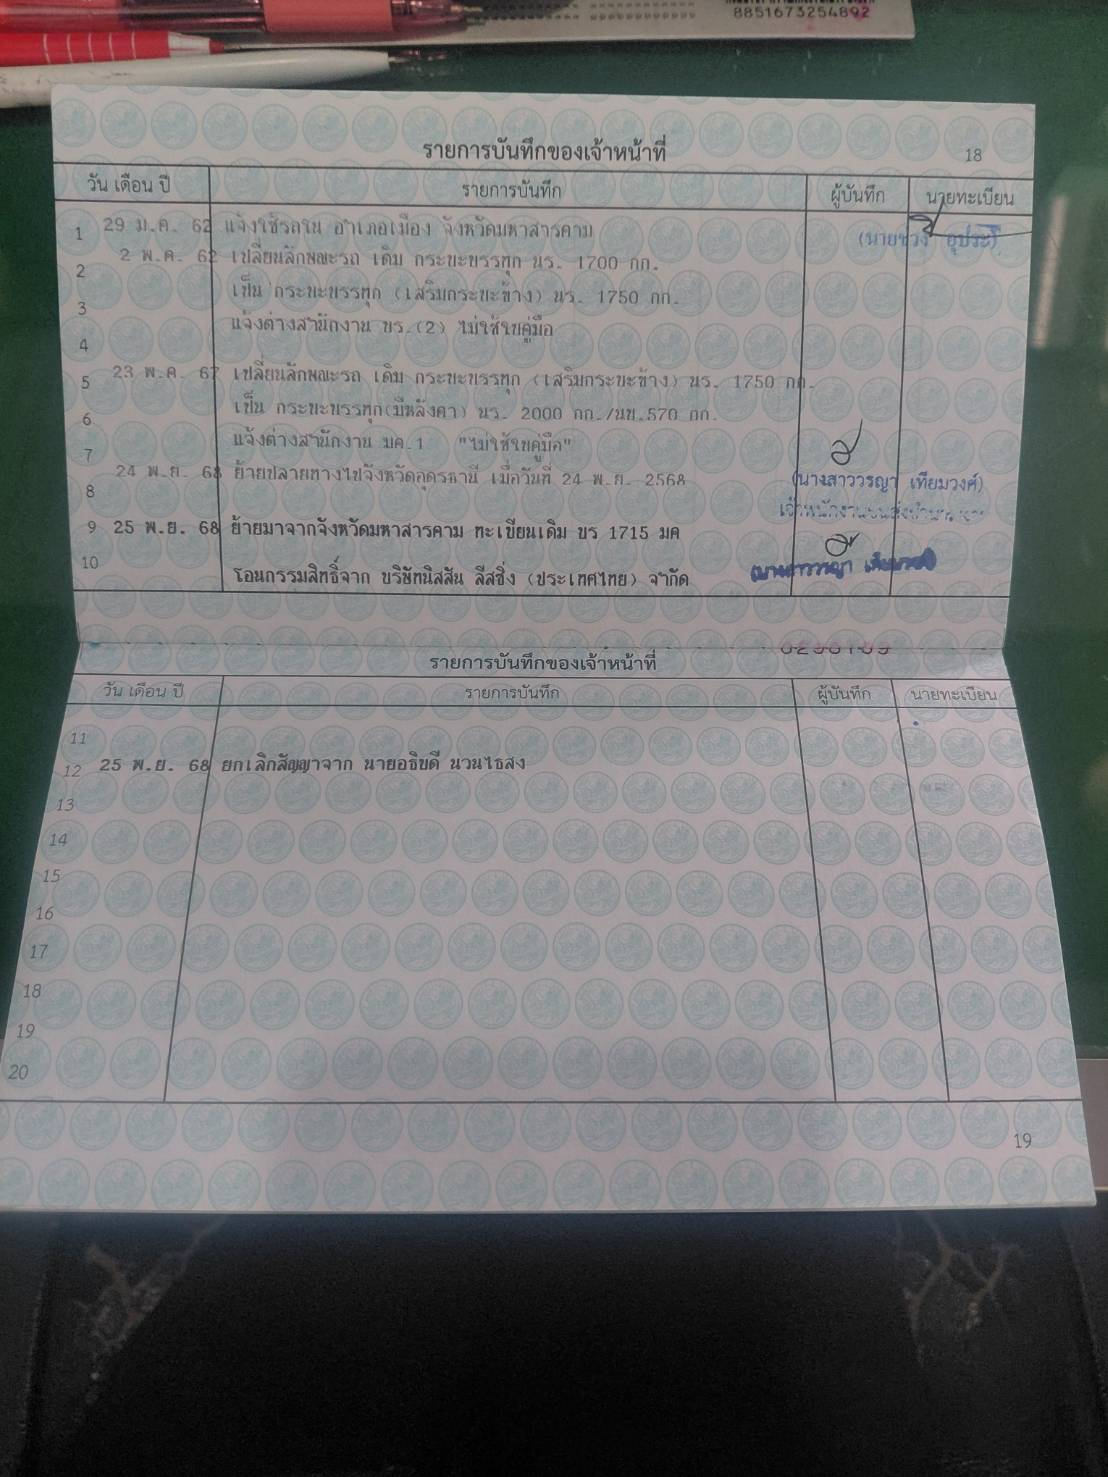 8851673254892
รายการบันทึกของเจ้าหน้าที่
18
วัน เดือน ปี รายการบันทึก ผู้บันทึก นายทะเบียน
1 29 ม.ค. 62 แจ้งใช้รถใน อำเภอเมือง จังหวัดมหาสารคาม
2 2 พ.ค. 62 เปลี่ยนลักษณะรถ เดิม กระบะบรรทุก นร. 1700 กก.
3 เป็น กระบะบรรทุก (เสริมกระบะข้าง) นร. 1750 กก.
4 แจ้งต่างสำนักงาน บร.(2) ไม่ใช้ใบคู่มือ
5 23 พ.ค. 67 เปลี่ยนลักษณะรถ เดิม กระบะบรรทุก (เสริมกระบะข้าง) นร. 1750 กก.
6 เป็น กระบะบรรทุก(มีหลังคา) นร. 2000 กก./นบ.570 กก.
7 แจ้งต่างสำนักงาน มค.1 "ไม่ใช้ใบคู่มือ"
8 24 พ.ย. 68 ย้ายปลายทางไปจังหวัดอุดรธานี เมื่อวันที่ 24 พ.ย. 2568
(นางสาววรญา เทียมวงศ์)
9 25 พ.ย. 68 ย้ายมาจากจังหวัดมหาสารคาม ทะเบียนเดิม บร 1715 มค
10 โอนกรรมสิทธิ์จาก บริษัทนิสสัน ลีสซิ่ง (ประเทศไทย) จำกัด
รายการบันทึกของเจ้าหน้าที่
วัน เดือน ปี รายการบันทึก ผู้บันทึก นายทะเบียน
11
12 25 พ.ย. 68 ยกเลิกสัญญาจาก นายอธิบดี นวนไธสง
13
14
15
16
17
18
19
20
19